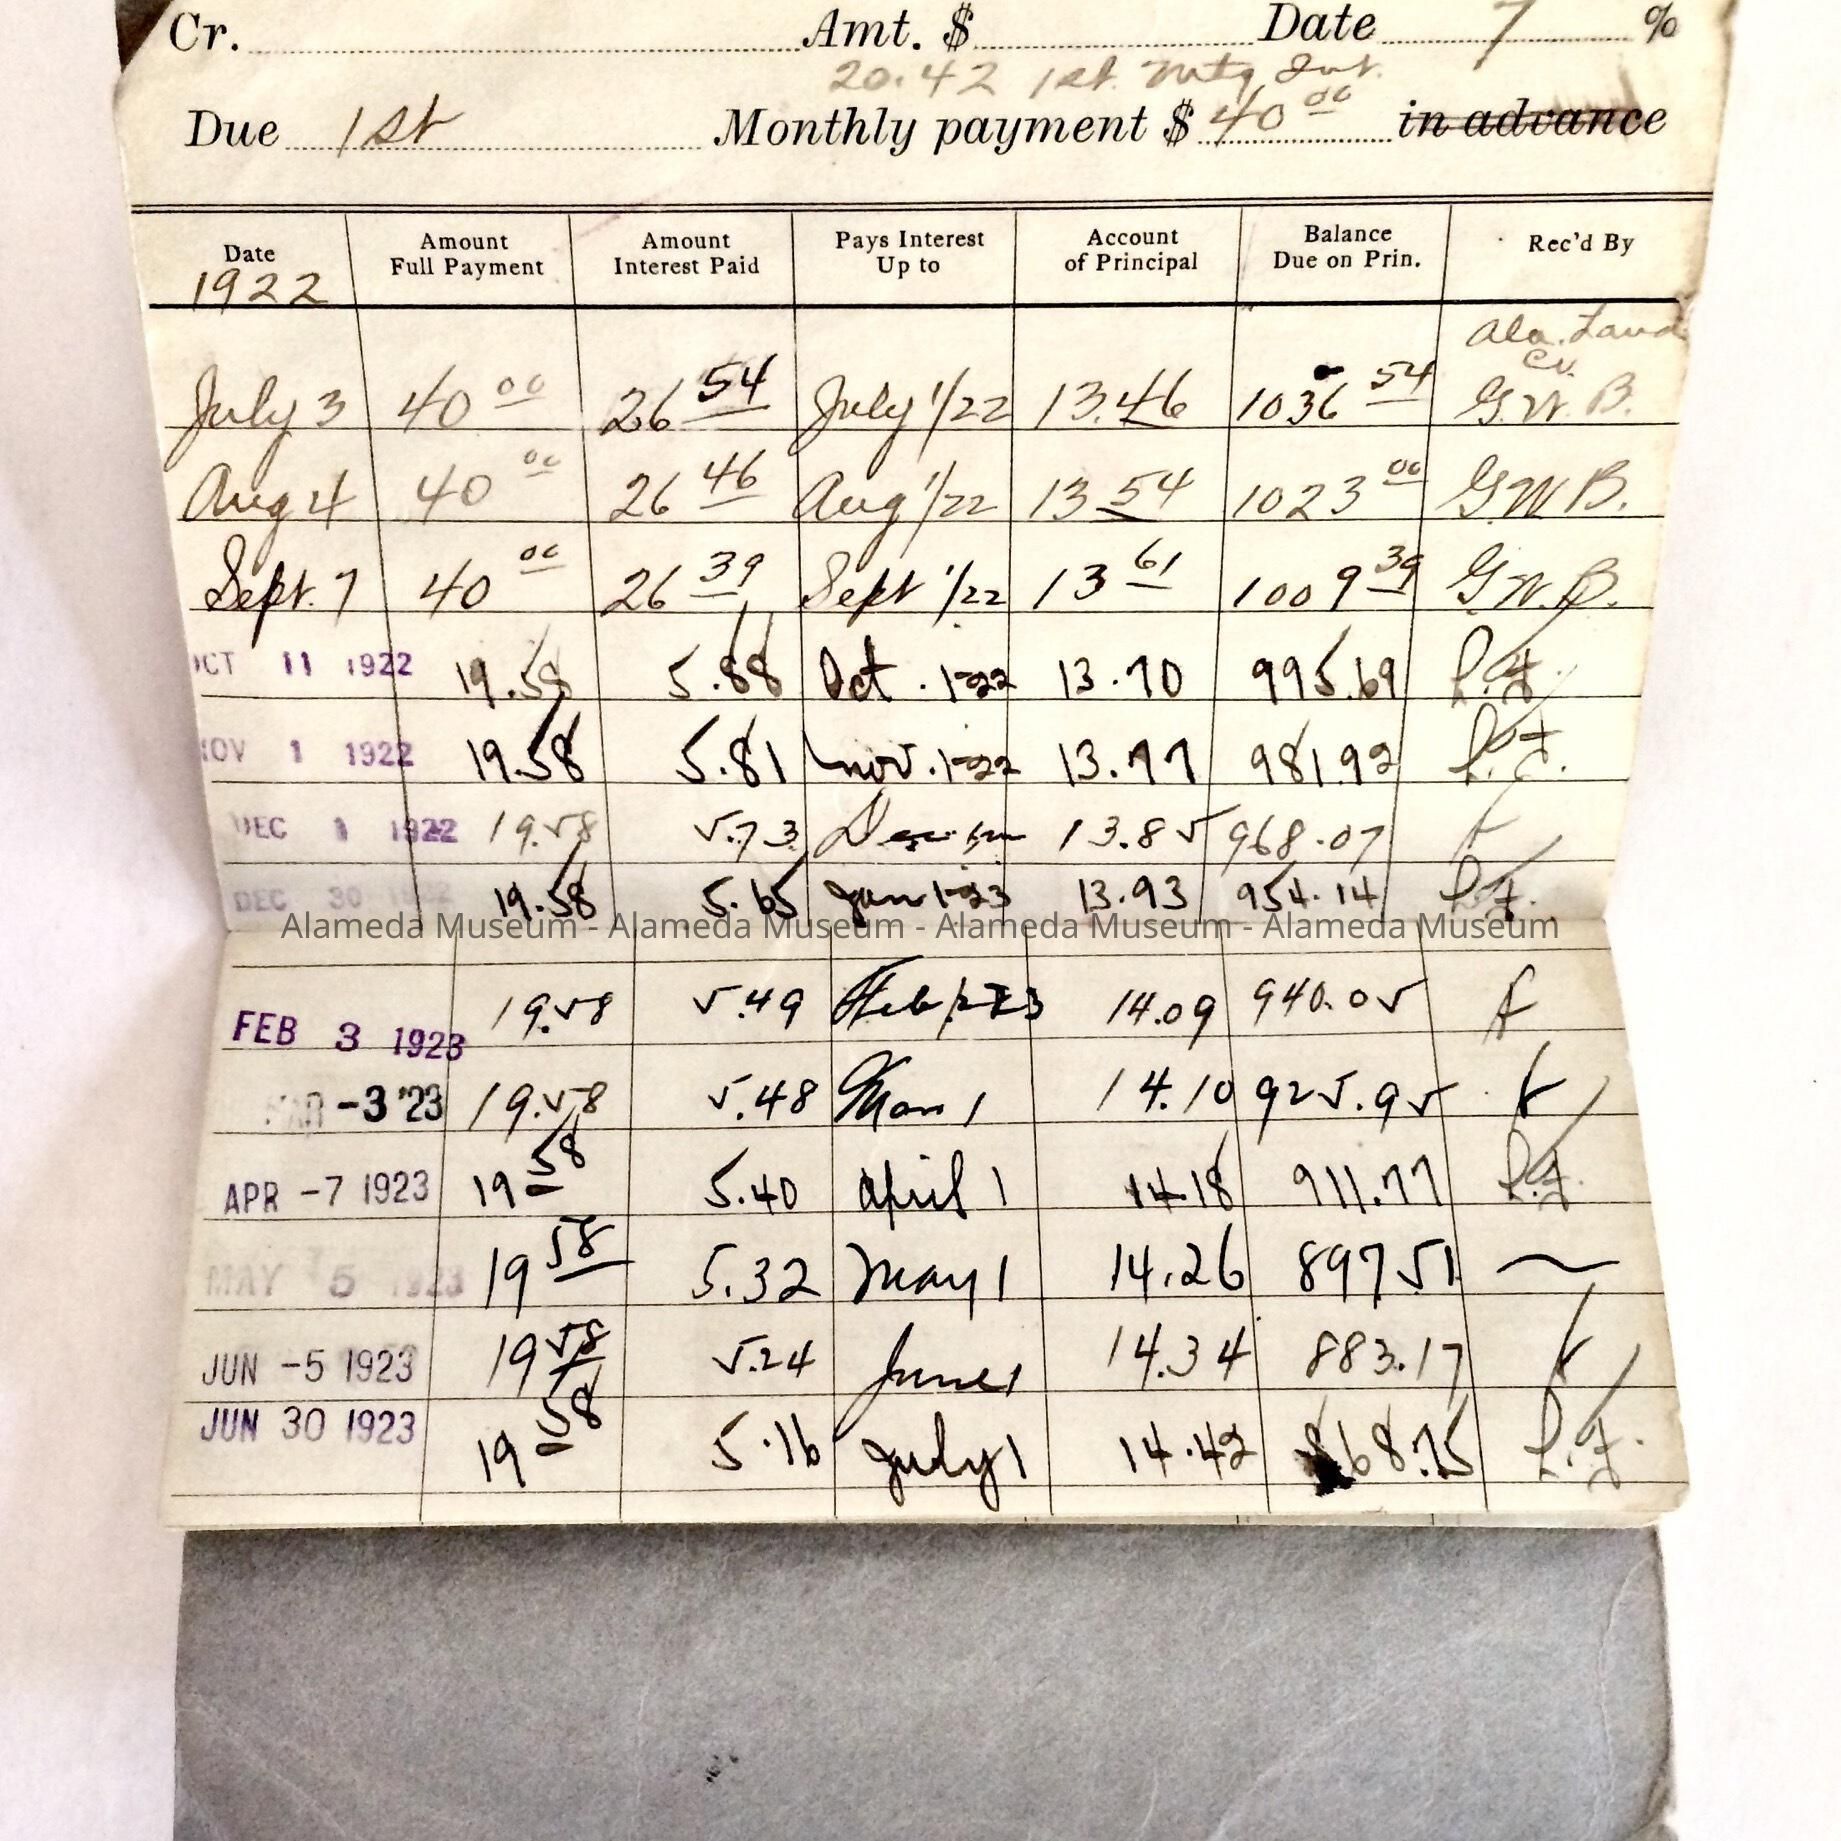 Cr. Amt. $ Date 7 %
20.42 1st. Mtg Int.
Due 1st Monthly payment $ 40 00 in advance
Date Amount Full Payment Amount Interest Paid Pays Interest Up to Account of Principal Balance Due on Prin. Rec'd By
1922
Ala. Land Co.
July 3 40 00 26 54 July 1/22 13.46 1036 54 G.W.B.
Aug 4 40 00 26 46 Aug 1/22 13 54 1023 00 G.W.B.
Sept. 7 40 00 26 39 Sept 1/22 13 61 1009 39 G.W.B.
OCT 11 1922 19.58 5.88 Oct. 1-22 13.70 995.69
NOV 1 1922 19.58 5.81 Nov. 1-22 13.77 981.92
DEC 1 1922 19.58 5.73 Dec 13.85 968.07
DEC 30 1922 19.58 5.65 Jan 1-23 13.93 954.14
Alameda Museum - Alameda Museum - Alameda Museum - Alameda Museum
FEB 3 1923 19.58 5.49 Feb 1-23 14.09 940.05
MAR -3 '23 19.58 5.48 Mar 1 14.10 925.95
APR -7 1923 19 58 5.40 April 1 14.18 911.77
MAY 5 1923 19 58 5.32 May 1 14.26 897 51
JUN -5 1923 19 58 5.24 June 1 14.34 883.17
JUN 30 1923 19 58 5.16 July 1 14.42 868.75